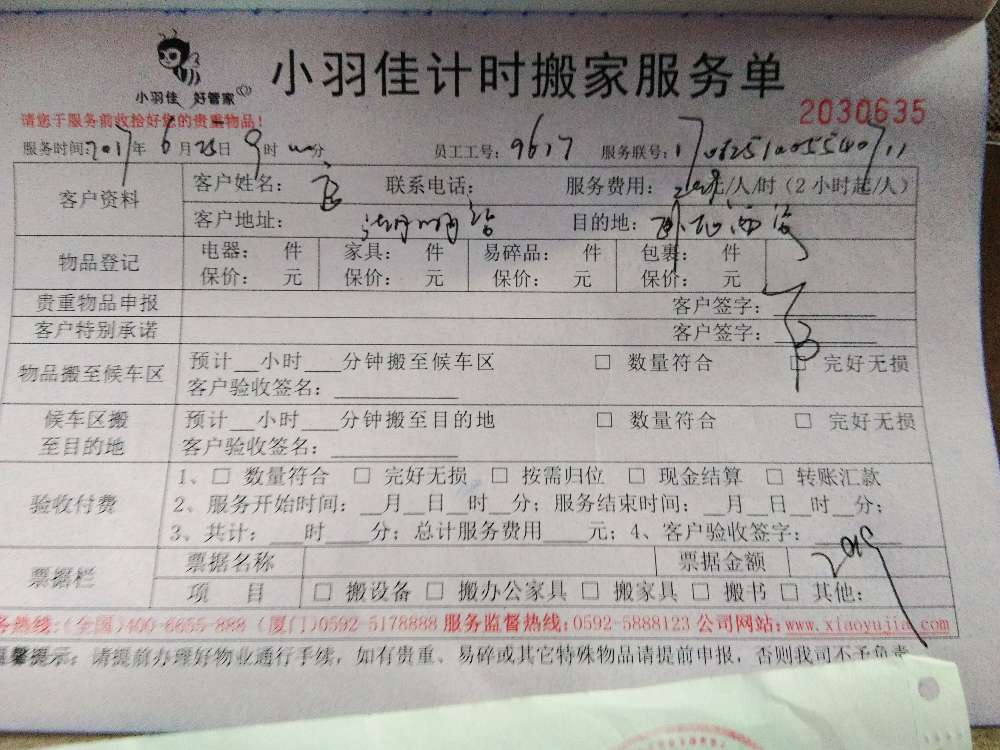 小羽佳 好管家
小羽佳计时搬家服务单
2030635
请您于服务前收拾好您的贵重物品!
服务时间:2017年6月25日9时 分 员工工号:9617 服务联号:
客户资料 客户姓名: 联系电话: 服务费用: 元/人/时(2小时起/人)
客户地址: 目的地:
物品登记 电器: 件 家具: 件 易碎品: 件 包裹: 件
保价: 元 保价: 元 保价: 元 保价: 元
贵重物品申报 客户签字:
客户特别承诺 客户签字:
物品搬至候车区 预计__小时___分钟搬至候车区 □ 数量符合 □ 完好无损
客户验收签名:
候车区搬至目的地 预计__小时___分钟搬至目的地 □ 数量符合 □ 完好无损
客户验收签名:
验收付费 1、□ 数量符合 □ 完好无损 □ 按需归位 □ 现金结算 □ 转账汇款
2、服务开始时间:__月__日__时__分;服务结束时间:__月__日__时__分;
3、共计:___时____分;总计服务费用____元;4、客户验收签字:
票据栏 票据名称 票据金额
项 目 □ 搬设备 □ 搬办公家具 □ 搬家具 □ 搬书 □ 其他:
务热线:(全国)400-6655-888 (厦门)0592-5178888 服务监督热线:0592-5888123 公司网站:www.xiaoyujia.com
温馨提示:请提前办理好物业通行手续,如有贵重、易碎或其它特殊物品请提前申报,否则我司不予负责